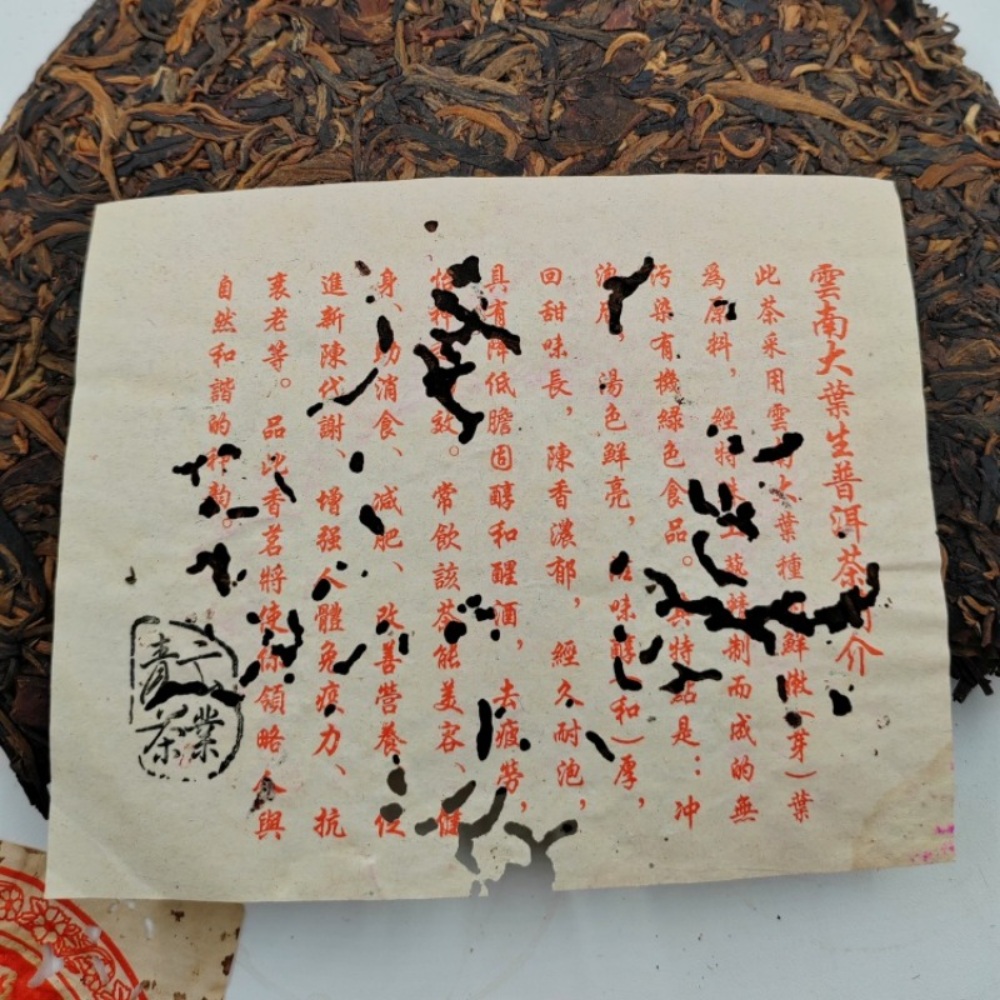 雲南大葉生普洱茶介
此茶采用雲南大葉種鮮嫩(芽)葉
爲原料，經特工藝制而成的無
污染有機綠色食品。其特點是：冲
泡后，湯色鮮亮，滋味醇(和)厚，
回甜味長，陳香濃郁，經久耐泡，
具有降低膽固醇和醒酒，去疲勞，
怡效。常飲該茶能美容、健
身、助消食、減肥、改善營養、促
進新陳代謝、增强人體免疫力、抗
衰老等。品此香茗將使你領略人與
自然和諧的神韵。
業
青茶